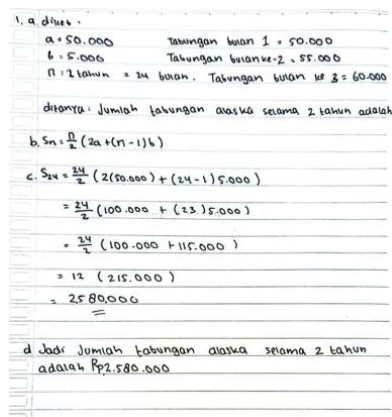 1. a. diket.
a = 50.000 Tabungan bulan 1 = 50.000
b = 5.000 Tabungan bulan ke-2 = 55.000
n = 2 tahun = 24 bulan. Tabungan bulan ke 3 = 60.000
ditanya: Jumlah tabungan alaska selama 2 tahun adalah
b. Sn = n/2 (2a + (n - 1) b)
c. S24 = 24/2 (2(50.000) + (24 - 1) 5.000)
= 24/2 (100.000 + (23.) 5.000)
= 24/2 (100.000 + 115.000)
= 12 (215.000)
= 2.580.000
d Jadi Jumlah tabungan alaska selama 2 tahun
adalah Rp2.580.000